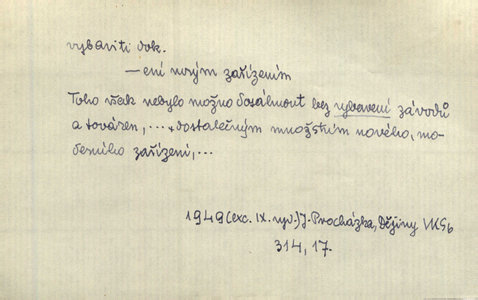 vybaviti dok.
—ení novým zařízením
Toho však nebylo možno dosáhnout bez vybavení závodů
a továren, ... dostatečným množstvím nového, mo-
derního zařízení, ...
1949 (exc. IX. vyd.) J. Procházka, Dějiny VKSb
314, 17.